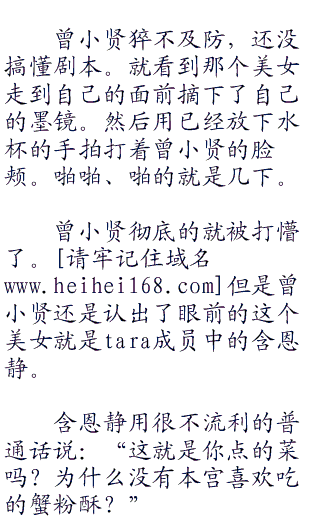 曾小贤猝不及防，还没
搞懂剧本。就看到那个美女
走到自己的面前摘下了自己
的墨镜。然后用已经放下水
杯的手拍打着曾小贤的脸
颊。啪啪、啪的就是几下。
曾小贤彻底的就被打懵
了。[请牢记住域名
www.heihei168.com]但是曾
小贤还是认出了眼前的这个
美女就是tara成员中的含恩
静。
含恩静用很不流利的普
通话说：“这就是你点的菜
吗？为什么没有本宫喜欢吃
的蟹粉酥？”